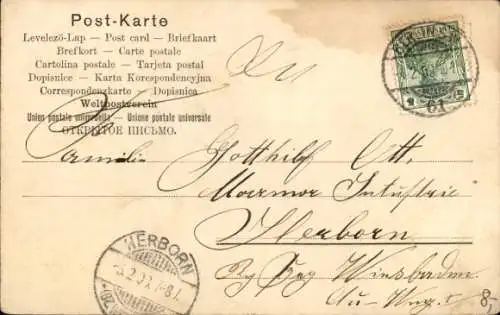 Post-Karte
Levelező-Lap — Post card — Briefkaart
Brefkort — Carte postale
Cartolina postale — Tarjeta postal
Dopisnice — Karta Korespondencyjna
Correspondenzkarte — Dopisnica
Weltpostverein
Union postale universelle — Unione postale universale
ОТКРЫТОЕ ПИСЬМО.
An
Familie Gotthilf Ott.
Marmor Intustrie
Herborn
Bez Wiesbaden
HERBORN
61
8,-